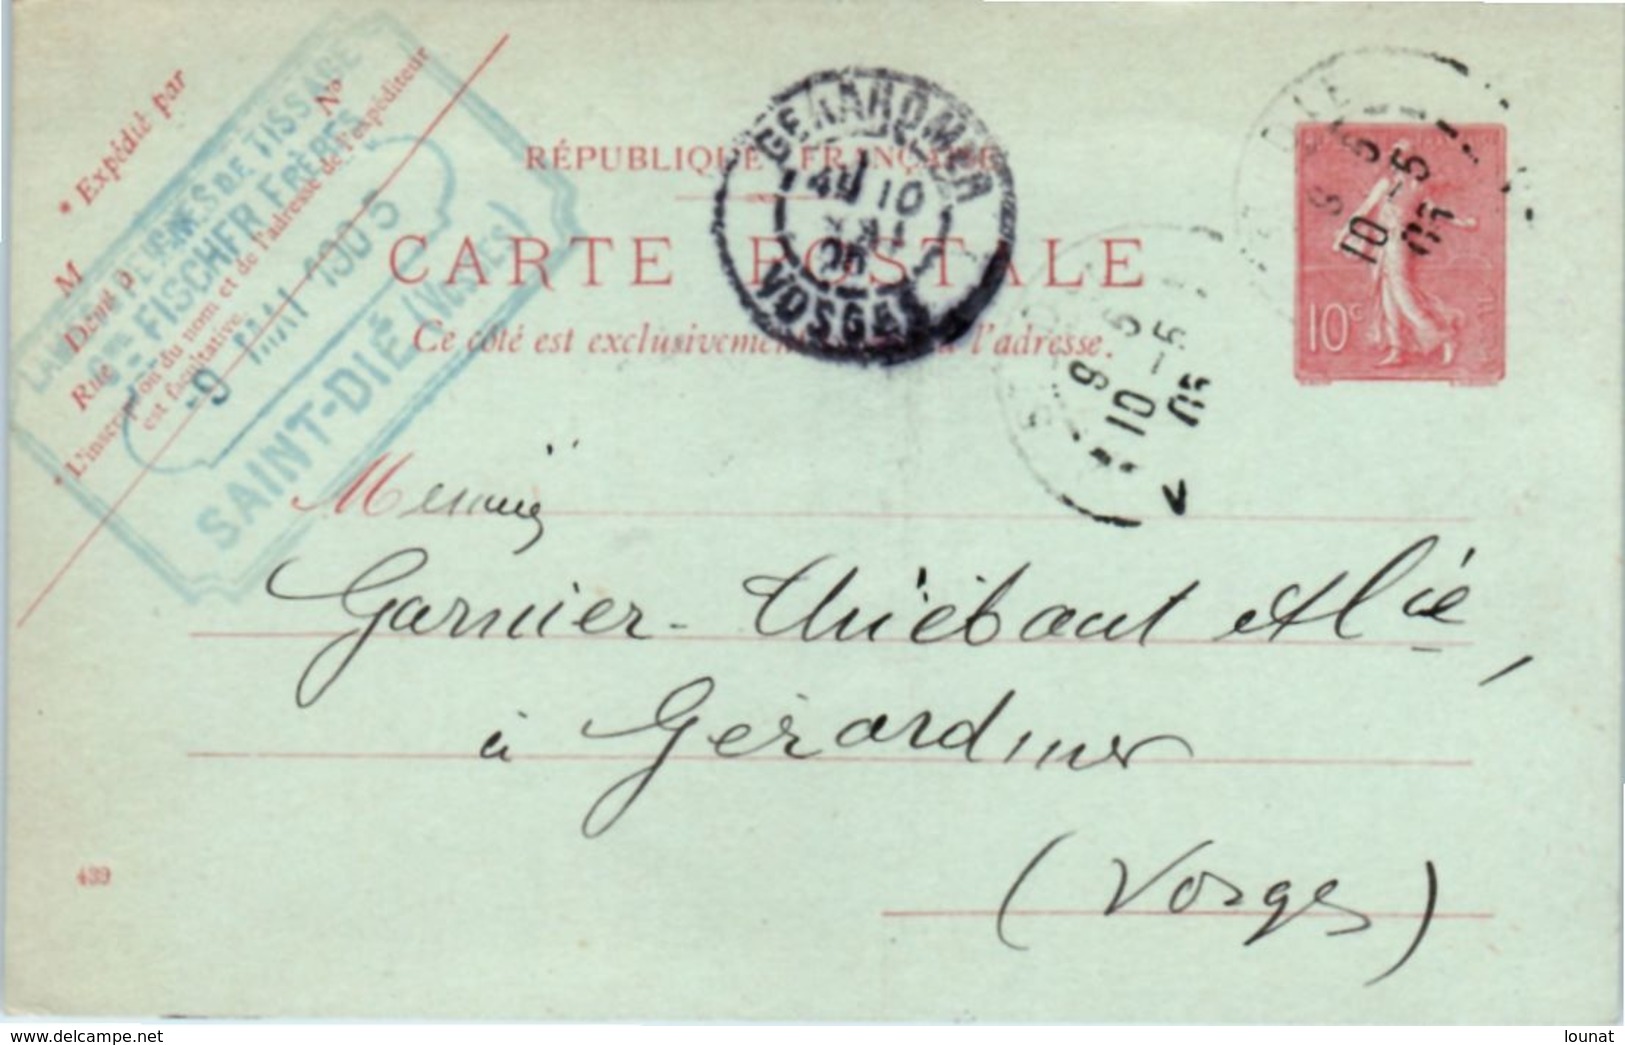 * Expédié par
N°
M
Rue
* L'inscription du nom et de l'adresse de l'expéditeur
est facultative.
PEIGNES DE TISSAGE
FISCHER FRÈRES
-9 MAI 1905
SAINT-DIÉ (VOSGES)
RÉPUBLIQUE FRANÇAISE
CARTE POSTALE
Ce côté est exclusivement à l'adresse.
GERARDMER
10
05
VOSGES
DIE
9 5
10 -5
05
9 5
10 -5
05
10c
Messieurs
Garnier-Thiébaut & Cie,
à Gérardmer
(Vosges)
439
www.delcampe.net
lounat